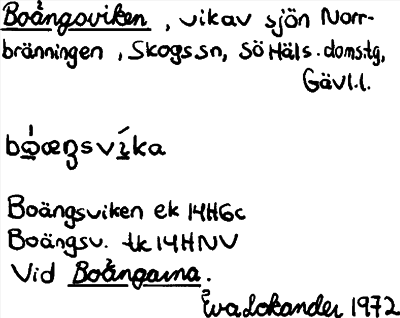 Boängsviken, vik av sjön Norr-
bränningen, Skogs sn, Sö Häls. doms.tg,
Gävl.l.
bo̱æŋsvi̱ka
Boängsviken ek 14H6c
Boängsv. tk 14HNV
Vid Boängarna.
Eva Lokander 1972